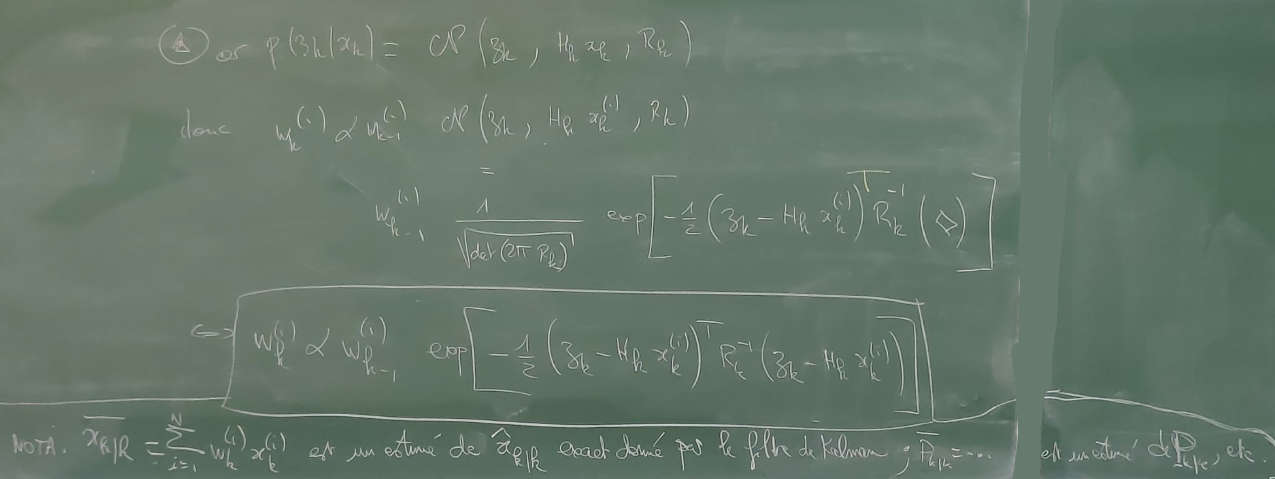 ① or p(zk|xk) = N(zk, Hk xk, Rk)
donc wk^(i) ∝ wk-1^(i) N(zk, Hk xk^(i), Rk)
=
wk-1^(i) 1/√det(2π Rk) exp[-1/2 (zk - Hk xk^(i))^T Rk^-1 (◇)]
⇔ wk^(i) ∝ wk-1^(i) exp[-1/2 (zk - Hk xk^(i))^T Rk^-1 (zk - Hk xk^(i))]
NOTA. x̄k|k = Σ_{i=1}^{N} wk^(i) xk^(i) est un estimé de x̂k|k exact donné par le filtre de Kalman ; P̄k|k = ... est un estimé de Pk|k, etc.